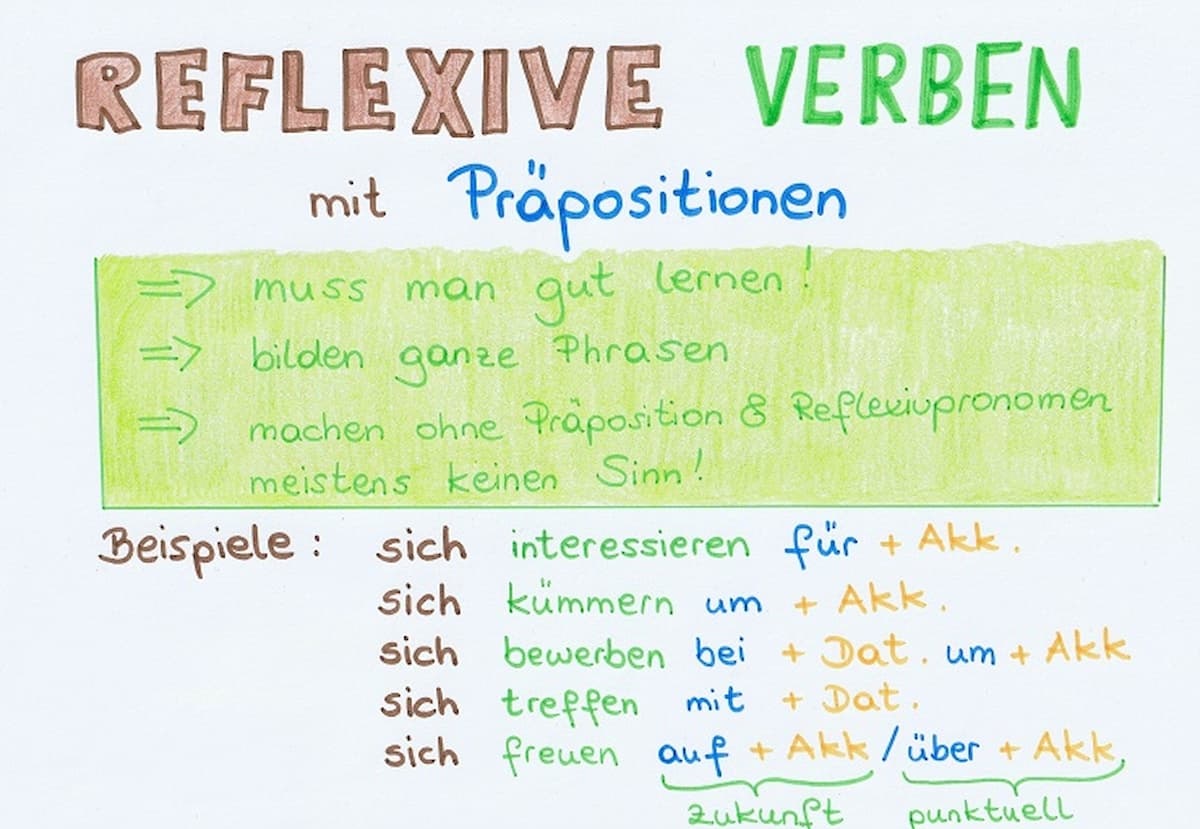 REFLEXIVE VERBEN
mit Präpositionen
=> muss man gut lernen!
=> bilden ganze Phrasen
=> machen ohne Präposition & Reflexivpronomen
meistens keinen Sinn!
Beispiele: sich interessieren für + Akk.
sich kümmern um + Akk.
sich bewerben bei + Dat. um + Akk
sich treffen mit + Dat.
sich freuen auf + Akk / über + Akk
zukunft punktuell